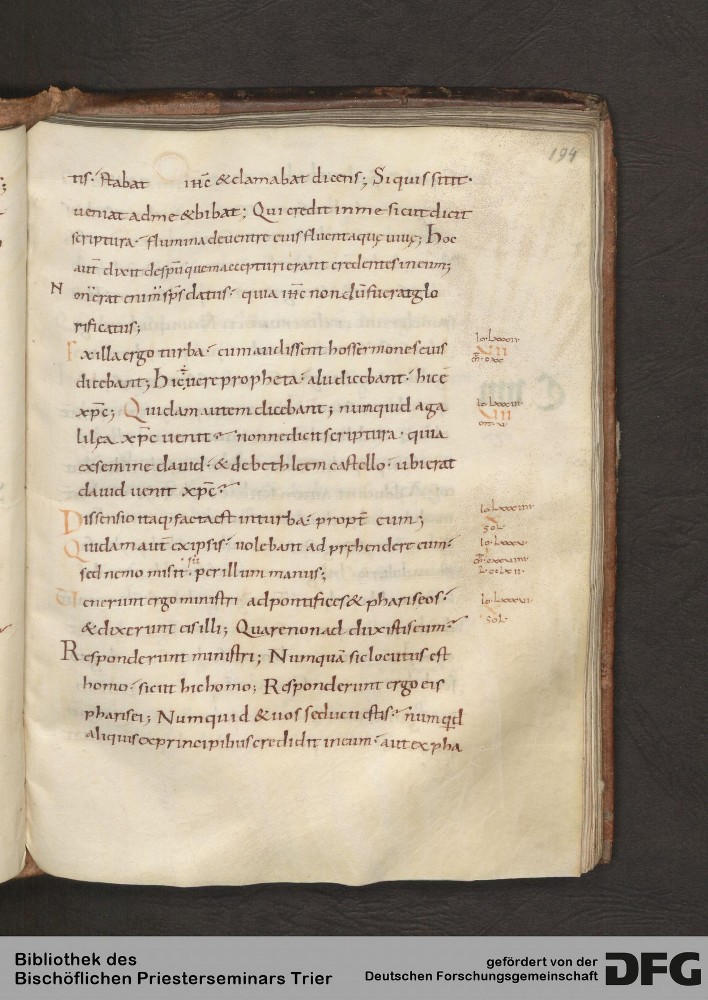 194
tis. stabat ihc & clamabat dicens; Si quis sitit.
ueniat ad me & bibat; Qui credit in me sicut dicit
scriptura. flumina de uentre eius fluent aquę uiuę; hoc
aut̄ dixit de sp̄u quem accepturi erant credentes in eum;
N
on erat enim sp̄s datus. quia ihc nondū fuerat glo
rificatus;
Ex illa ergo turba. cum audissent hos sermones eius
dicebant; Hic uere propheta. alii dicebant. hic ē
xp̄c; Quidam autem dicebant; numquid a ga
lilęa xp̄c uenit. nonne dicit scriptura. quia
ex semine dauid. & de bethleem castello. ubi erat
dauid uenit xp̄c.
Dissensio itaq; facta est in turba. propt̄ eum;
Quidam aut̄ ex ipsis. uolebant adprehendere eum.
sed nemo misit super illum manus;
Uenerunt ergo ministri ad pontifices & phariseos.
& dixerunt eis illi; Quare non adduxistis eum.
Responderunt ministri; Numquā sic locutus est
homo. sicut hic homo; Responderunt ergo eis
pharisei; Numquid & uos seducti estis. numqd
aliquis ex principibus credidit in eum. aut ex pha
Sol.
Sol.
Bibliothek des
Bischöflichen Priesterseminars Trier
gefördert von der
Deutschen Forschungsgemeinschaft
DFG